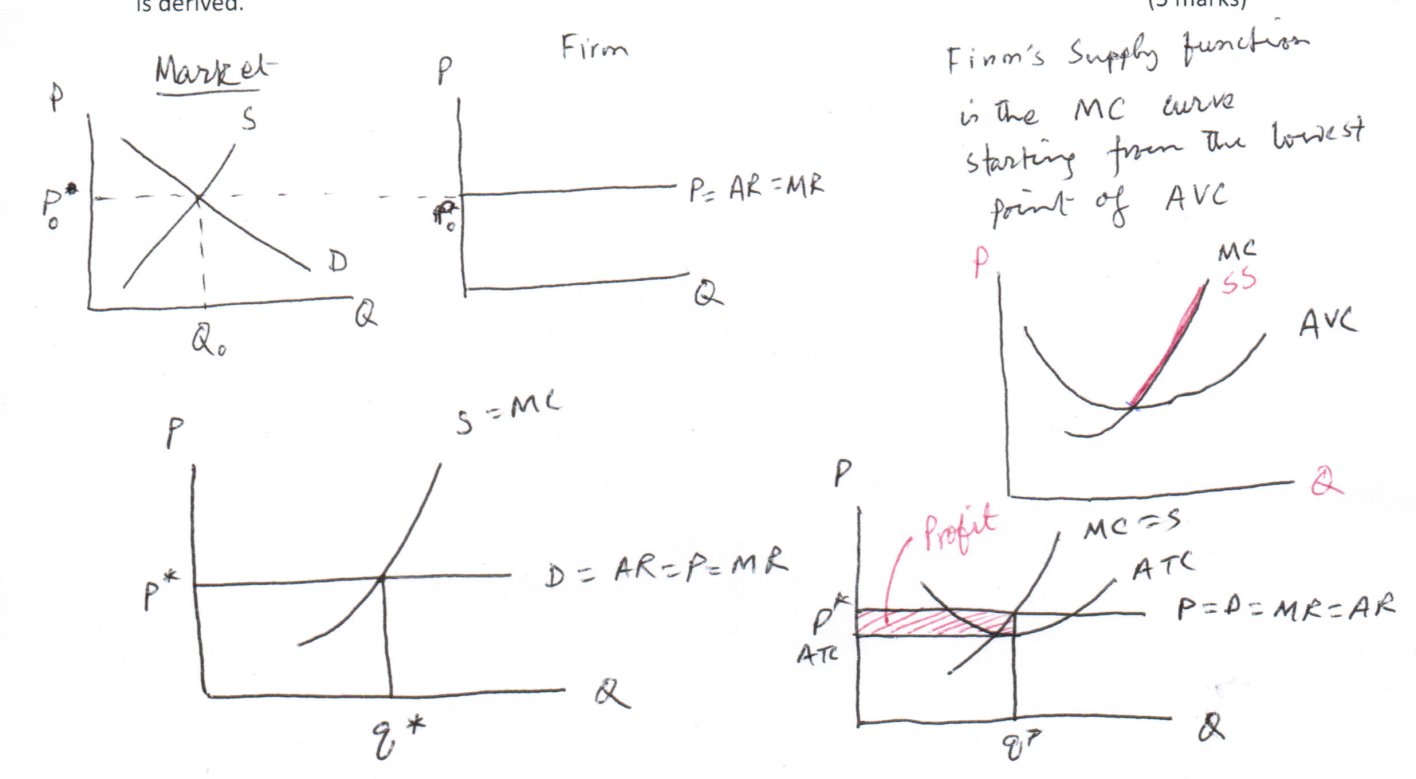 is derived.
(5 marks)
Market
P
S
P*
0
D
Q
Q₀
Firm
P
P= AR=MR
Q
Firm's Supply function
is the MC curve
starting from the lowest
point of AVC
P
MC
SS
AVC
Q
P
S=MC
P*
D= AR=P=MR
Q
q*
P
Profit
MC=S
ATC
P*
P=D=MR=AR
ATC
Q